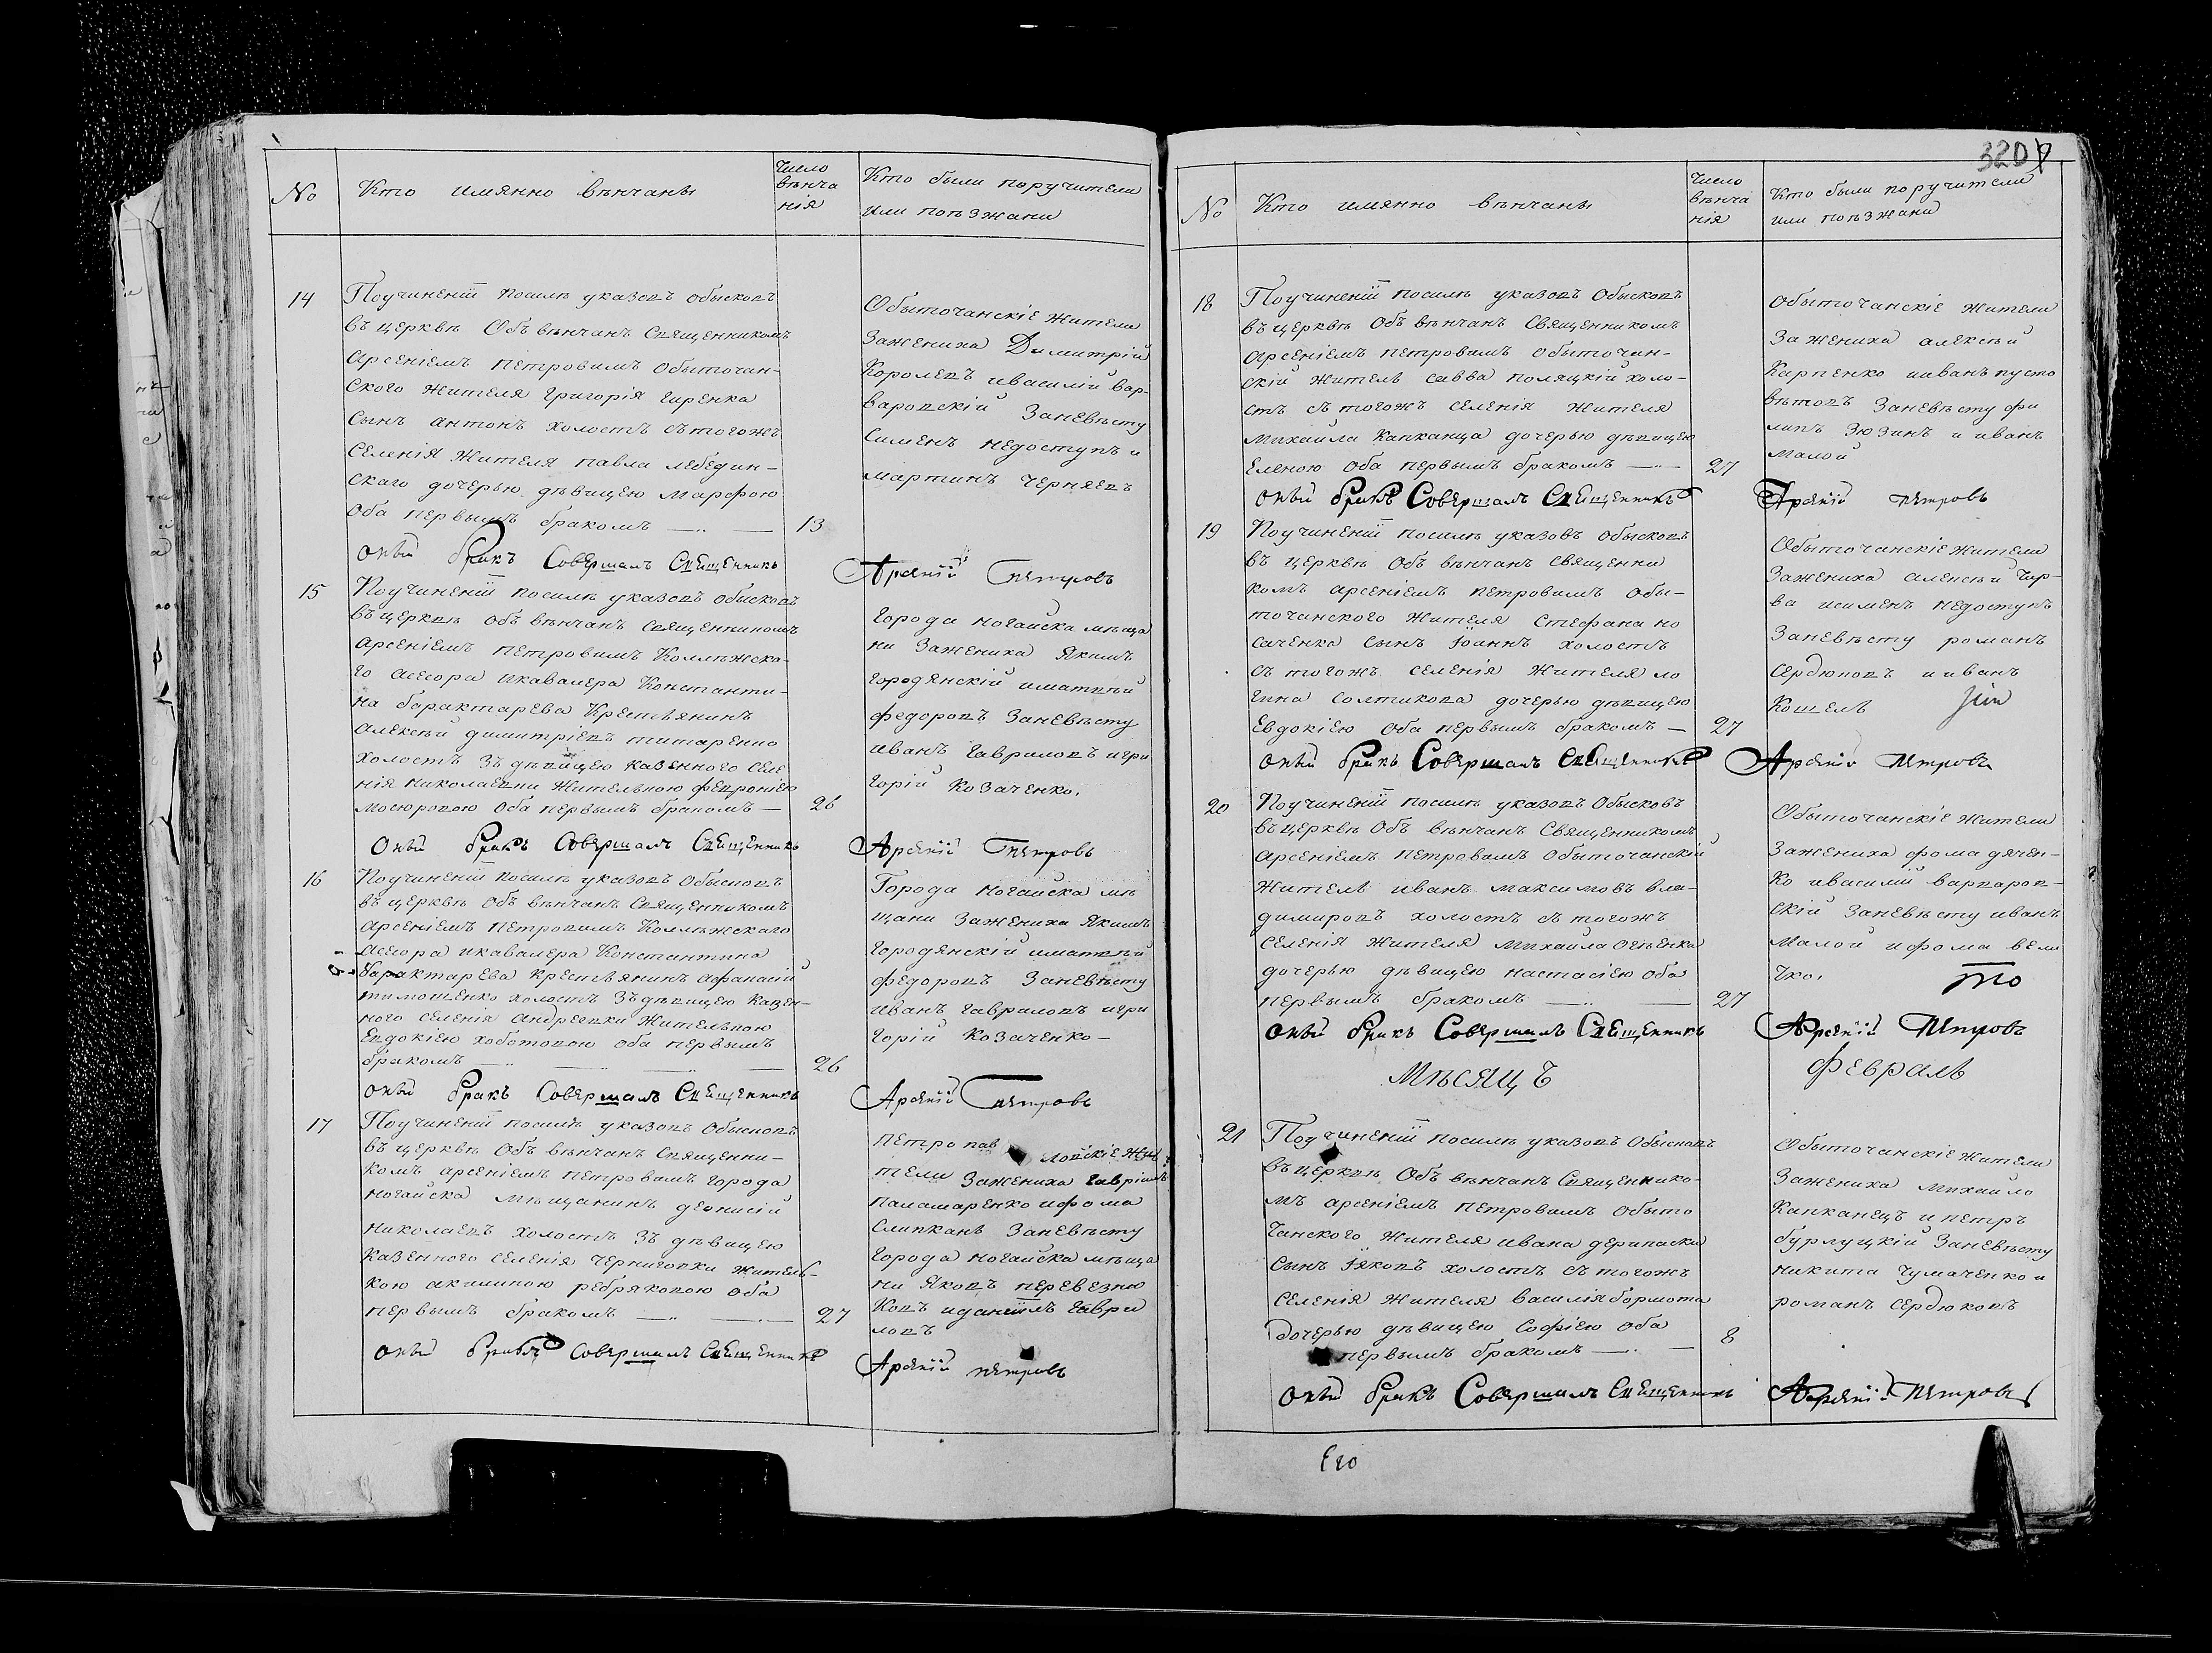 3209
No
Кто имянно вѣнчаны
Число
вѣнча
нія
Кто были поручители
или поѣзжани
14
Поучиненіи посилѣ указовъ обысковъ
въ церквѣ Обѣ вѣнчанъ Священникомъ
Арсеніемъ Петровымъ Обыточан-
ского жителя Григорія Гиренка
Сынъ антонъ холостъ стогожъ
Селенія жителя павла лебедин-
скаго дочерью дѣвицею Марфою
Оба первымъ бракомъ
13
Обыточанскіе жители
Зажениха Димитрій
Королевъ ивасилій вар-
варовскій Заневѣсту
Сименъ недоступъ и
мартинъ черняевъ
оный бракъ Совершалъ Священникъ Арсеній Петровъ
15
Поучиненіи посилѣ указовъ обысковъ
въ церквѣ обѣ вѣнчанъ священникомъ
Арсеніемъ Петровымъ Коллѣжска-
го асесора икавалера Константи-
на барактарева Крестьянинъ
алексѣй димитріевъ титаренко
холостъ зъ дѣвицею казенного селе
нія николаевки жителькою февроніею
мосюровою оба первымъ бракомъ —
26
Города ногайска мѣща
ни Зажениха Якимъ
городянскій иматвѣй
федоровъ Заневѣсту
иванъ гавриловъ игри
горій Козаченко.
Оный бракъ Совершалъ Священникъ Арсеній Петровъ
16
Поучиненіи посилѣ указовъ Обысковъ
въ церквѣ Обѣ вѣнчанъ Священникомъ
арсеніемъ Петровымъ Коллѣжскаго
Асесора икавалера Константина
барактарева крестьянинъ афанасій
тимошенко холостъ зъ дѣвицею казен-
ного селенія андреевки жителькою
Евдокіею хоботовою оба первымъ
бракомъ
26
Города ногайска мѣ
щани Зажениха Якимъ
городянскій иматвѣй
федоровъ Заневѣсту
иванъ гавриловъ игри
горій Козаченко —
оный бракъ Совершалъ Священникъ Арсеній Петровъ
17
Поучиненіи посилѣ указовъ Обысковъ
въ церквѣ Обѣ вѣнчанъ Священни-
комъ арсеніемъ петровымъ города
ногайска мѣщанинъ деонисій
николаевъ холостъ зъ дѣвицею
казенного селенія черниговки житель-
кою акилиною ребряковою оба
первымъ бракомъ
27
Петропав ловскіе жи
тели Зажениха гавріилъ
паламаренко ифома
слипканъ Заневѣсту
города ногайска мѣща
ни Яковъ перевезню
ковъ иданіилъ гаври
ловъ
оный бракъ совершалъ Священникъ Арсеній Петровъ
No
Кто имянно вѣнчаны
Число
вѣнча
нія
Кто были поручители
или поѣзжани
18
Поучиненіи посилѣ указовъ Обысковъ
въ церквѣ Обѣ вѣнчанъ Священникомъ
арсеніемъ петровымъ обыточан-
скій житель савва поляцкій холо-
стъ стогожъ селенія жителя
михайла Капканца дочерью дѣвицею
Еленою оба первымъ бракомъ
27
обыточанскіе жители
Зажениха алексѣй
Карпенко ииванъ пусто
вѣтовъ Заневѣсту фи
липъ Зюзинъ и иванъ
малой
оный бракъ Совершалъ Священникъ Арсеній Петровъ
19
Поучиненіи посилѣ указовъ обысковъ
въ церквѣ Обѣ вѣнчанъ священни
комъ арсеніемъ петровымъ обы-
точанского жителя Стефана но
саченка сынъ іоаннъ холостъ
стогожъ селенія жителя ло
гина солтикова дочерью дѣвицею
Евдокіею оба первымъ бракомъ —
27
Обыточанскіе жители
Зажениха алексѣй чир-
ва исименъ недоступъ
Заневѣсту романъ
сердюковъ ииванъ
Кошель
оный бракъ Совершалъ Священникъ Арсеній Петровъ
20
Поучиненіи посилѣ указовъ Обысковъ
въ церквѣ Обѣ вѣнчанъ Священникомъ
арсеніемъ петровымъ Обыточанскій
житель иванъ максимовъ вла-
димировъ холостъ стогожъ
селенія жителя михайла огіенка
дочерью дѣвицею настасіею оба
первымъ бракомъ
27
Обыточанскіе жители
Зажениха фома дячен-
ко ивасилій варваров-
скій Заневѣсту иванъ
малой ифома вели
чко.
оный бракъ Совершалъ Священникъ Арсеній Петровъ
Мѣсяцъ Февраль
21
Поучиненіи посилѣ указовъ Обысковъ
въ церквѣ Обѣ вѣнчанъ Священнико-
мъ арсеніемъ петровымъ Обыто
чанского жителя ивана дерипаски
сынъ іяковъ холостъ стогожъ
селенія жителя василія бормота
дочерью дѣвицею Софіею оба
первымъ бракомъ
8
Обыточанскіе жители
Зажениха михайло
Капканецъ и петръ
бурлуцкій Заневѣсту
никита чумаченко и
романъ сердюковъ
оный бракъ Совершалъ Священникъ Арсеній Петровъ
Его